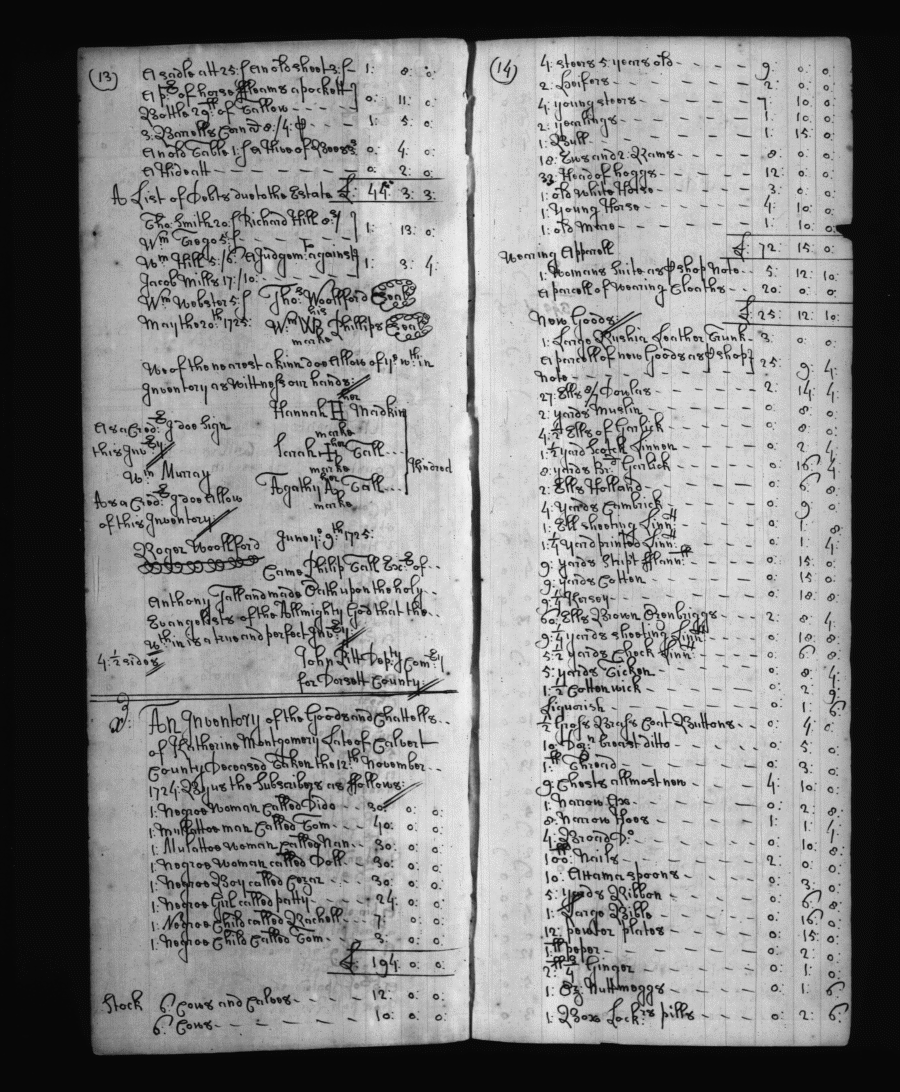 (13)
A sadle att 25:/ An old sheet 3:/ - 1: 8: 0:
A pr of horse ffleams a pockett
Bottle 29lb of Tallow - - - 0: 11: 0:
3: Barrells Corn att 8/4: p - 1: 5: 0:
An old Table 1:/ A Hive of Bees 3s 0: 4: 0:
A Hide att - - - 0: 2: 0:
A List of Debts due to the Estate £: 44: 3: 3:
Tho: Smith 20:/ Richard Hill 8:/
Wm Gogo 5:/ - - - 1: 13: 0:
Wm Hill 5:/6: A Judgmt: against
Jacob Mills 17:/10: - - - 1: 3: 4:
Wm Webster 5:/ Thos: Woolford Seal
May the 20th: 1725: Wm his WP marke Phillips Seal
We of the nearest a kinn doe allow of ye: within
Inventory as Wittness our hands:
Hannah her H marke Madkin
As a Credr: I doe Sign
this Invry Sarah her marke Tall
Kindred
Wm Murray Agathy her A marke Tall
As a Credr: I doe allow
of this Inventory:
Roger Woolford June ye: 9:th 1725:
Came Philip Tall Exr: of
Anthony Tall and made Oath upon the holy
Evangelists of the Allmighty God that the
within is a true and perfect Invry
4:½ sides John Pitt Depty Comry
for Dorsett County
An Inventory of the Goods and Chattells
of Katherine Montgomery Late of Calvert
County Deceased Taken the 12:th November
1724: By us the Subscribers as ffollows:
1: Negroe Woman Called Dido - - 30: 0: 0:
1: Mullattoe man Called Tom - - 40: 0: 0:
1: Mulattoe Woman Called Nan - - 30: 0: 0:
1: Negroe Woman called Doll - - 30: 0: 0:
1: Negroe Boy called Cezar - - 30: 0: 0:
1: Negroe Girl called patty - - 24: 0: 0:
1: Negroe Child called Rachell - - 7: 0: 0:
1: Negroe Child Called Tom - - 3: 0: 0:
£: 194: 0: 0:
Stock 6: Cows and Calves - - - 12: 0: 0:
6: Cows - - - 10: 0: 0:
(14)
4: steers 5: years old - - - 9: 0: 0:
2: Heifers - - - 2: 0: 0:
4: young steers - - - 7: 10: 0:
2: yearlings - - - 1: 10: 0:
1: Bull - - - 1: 15: 0:
18: Ews and 2: Rams - - - 8: 0: 0:
33: Head of hoggs - - - 12: 0: 0:
1: old white Horse - - - 3: 0: 0:
1: Young Horse - - - 4: 10: 0:
1: old Mare - - - 1: 10: 0:
Wearing Apparell £: 72: 15: 0:
1: Womans Suite as p shop Note - - 5: 12: 10:
A parcell of Wearing Cloaths - - 20: 0: 0:
£: 25: 12: 10:
New Goods:
1: Large Rushia Leather Trunk - 3: 0: 0:
A parcell of new Goods as p shop
note - - - 25: 9: 4:
27: Ells 8/ Dowlas - - - 2: 14: 4:
2: yards Muslin - - - 0: 8: 0:
4:½ Ells of Garlick - - - 0: 8: 0:
1:½ yard Scotch Linnen - - - 0: 2: 4:
8: yards Br: Garlick - - - 0: 16: 4:
2: Ells Holland - - - 0: 6: 8:
4: Yards Cambrick - - - 0: 9: 0:
1: Ell sheeting Linn: - - - 0: 1: 8:
1:¼ Yard printed Linn: - - - 0: 1: 4:
9: yards Stript fflann: - - - 0: 15: 0:
9: yards Cotton - - - 0: 15: 0:
9:¼ Kersey - - - 0: 18: 8:
60: Ells Brown Ozenbriggs - - 2: 8: 4:
9:¼ yards sheeting Linn - - - 0: 10: 8:
5:½ yards Check Linn: - - - 0: 6: 8:
5: yards Ticken - - - 0: 8: 4:
1:½ Cottonwick - - - 0: 2: 9:
Liquorish - - - 0: 1: 6:
½ Gross Brass Coat Buttons - - 0: 4: 0:
10: Dozn: breast ditto - - - 0: 5: 0:
1:lb Thread - - - 0: 3: 0:
9: Chests allmost new - - - 4: 10: 0:
1: Narrow Axe - - - 0: 2: 8:
8: Narrow Hoes - - - 1: 1: 4:
4: Broad Do - - - 0: 10: 8:
100: Nails - - - 2: 0: 0:
10: Attama spoons - - - 0: 3: 0:
5: Yards Ribbon - - - 0: 6: 8:
1: Large Bible - - - 0: 16: 0:
12: pewter plates - - - 0: 15: 0:
1:lb peper - - - 0: 2: 0:
2:lb ¾ Ginger - - - 0: 1: 0:
1: Oz Nuttmeggs - - - 0: 1: 6:
1: Box Lockrs pills - - - 0: 2: 6: